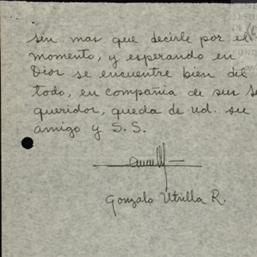 sin mas que decirle por el
momento, y esperando en
Dios se encuentre bien del
todo, en compañia de sus
queridos, queda de ud. su
amigo y S. S.
Gonzalo Utrilla R.